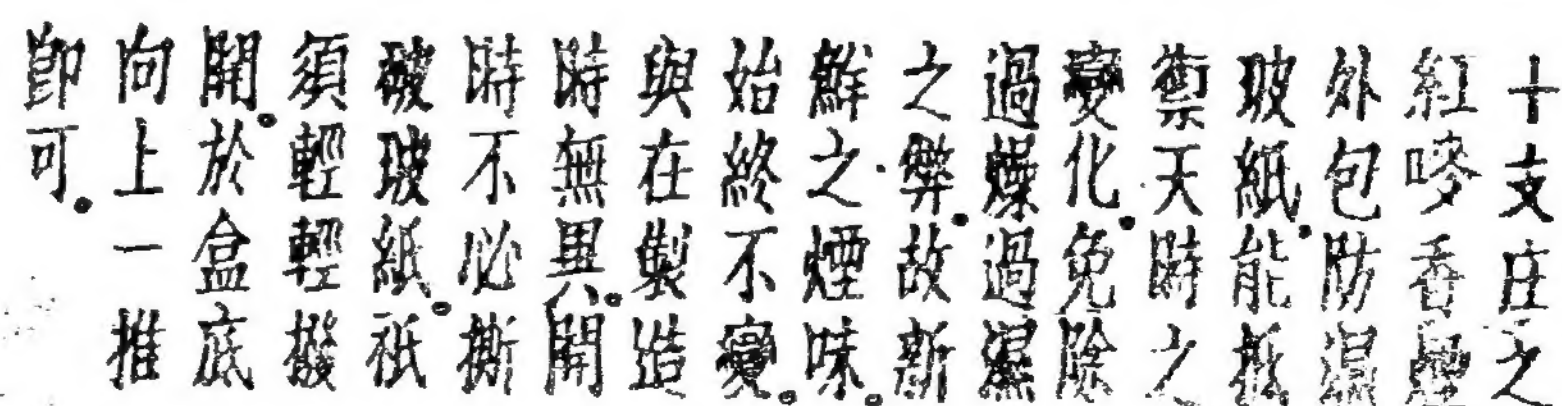 十支庄之
紅嘜香煙
外包防濕
玻紙。能抵
禦天時之
變化。免除
過燥過濕
之弊。故新
鮮之煙味。
始終不變。
與在製造
時無異。開
時不必撕
破玻紙。祇
須輕輕撥
開。於盒底
向上一推
卽可。